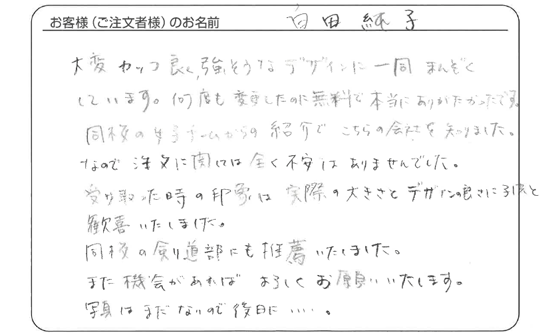 お客様（ご注文者様）のお名前 白田純子
大変カッコ良く、強そうなデザインに一同まんぞく
しています。何度も変更したのに無料で本当にありがたかったです。
同校の女子チームからの紹介でこちらの会社を知りました。
なので注文に関しては全く不安はありませんでした。
受け取った時の印象は実際の大きさとデザインの良さに
歓喜いたしました。
同校の剣道部にも推薦いたしました。
また機会があればよろしくお願いいたします。
写真はまだないので後日に……。